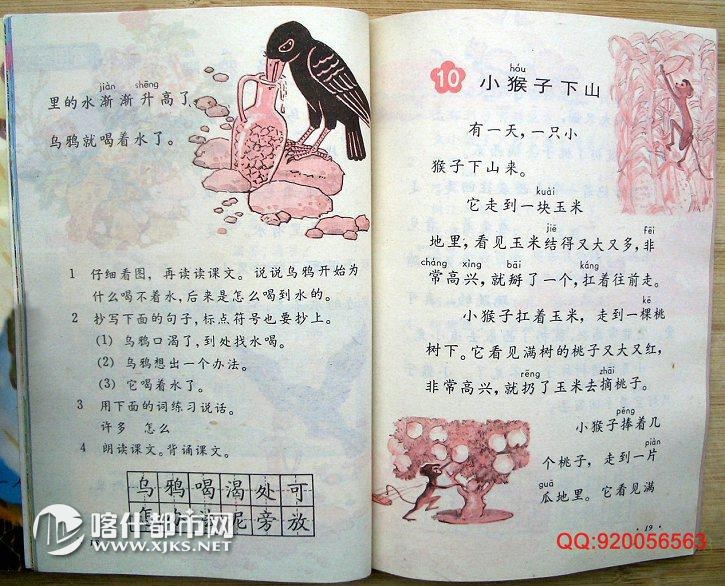 jiàn shēng
里的水渐渐升高了,
乌鸦就喝着水了。
1 仔细看图，再读读课文。说说乌鸦开始为
什么喝不着水，后来是怎么喝到水的。
2 抄写下面的句子，标点符号也要抄上。
(1) 乌鸦口渴了，到处找水喝。
(2) 乌鸦想出一个办法。
(3) 它喝着水了。
3 用下面的词练习说话。
许多 怎么
4 朗读课文。背诵课文。
乌鸦喝渴处可
怎 旁放
喀什都市网
www.XJKS.NET
hóu
10 小猴子下山
有一天，一只小
猴子下山来。
kuài
它走到一块玉米
jiē fēi
地里，看见玉米结得又大又多，非
cháng xìng bāi káng
常高兴，就掰了一个，扛着往前走。
kē
小猴子扛着玉米，走到一棵桃
树下。它看见满树的桃子又大又红，
rēng zhāi
非常高兴，就扔了玉米去摘桃子。
pěng
小猴子捧着几
piàn
个桃子，走到一片
guā
瓜地里。它看见满
· 19 ·
QQ:920056563